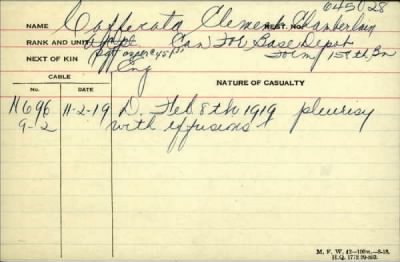 645028
NAME Caffarata Clement Chamberlain
REGT. NO.
RANK AND UNIT Can For Base Depot
Form 15th, Bn
NEXT OF KIN
Eng
CABLE
NATURE OF CASUALTY
No. DATE
N696 11-2-19 D. Feb 8th 1919 pleurisy
9-2 with effusions
M. F. W. 42-100m.-8-18.
H.Q. 1772 39-893.